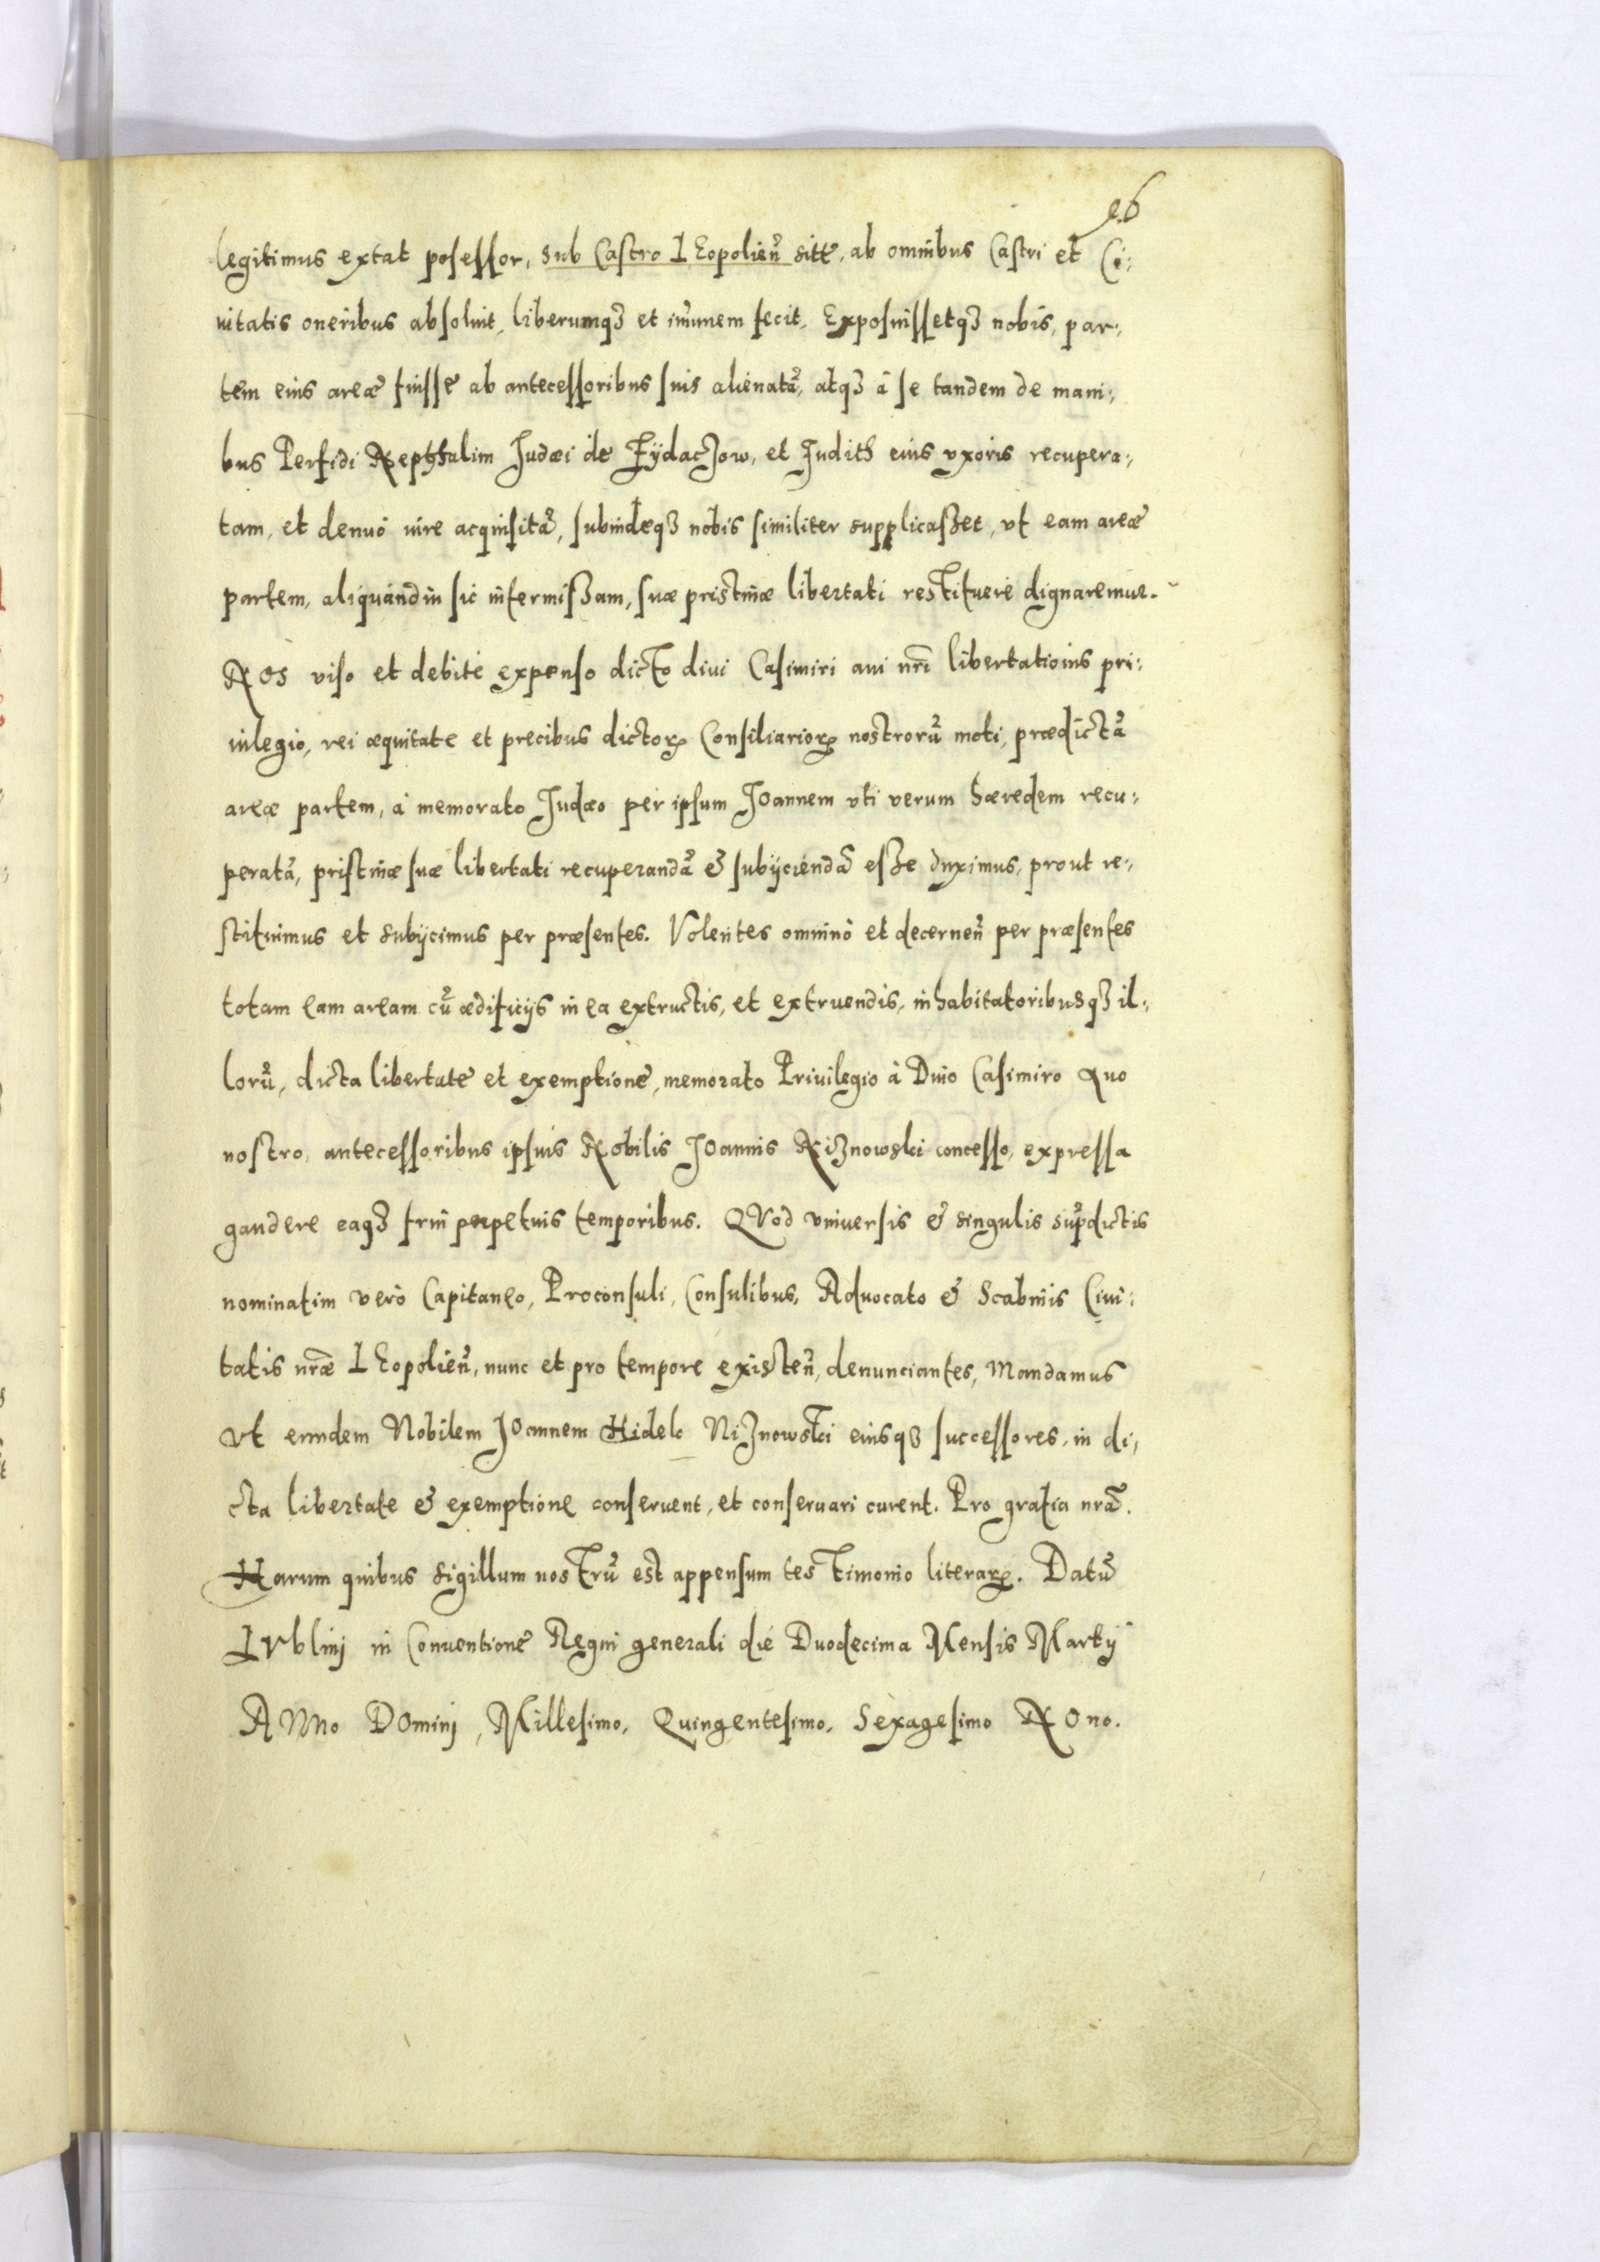 26
legitimus extat posessor, sub Castro LEopolieñ sitæ, ab omnibus Castri et Ci:
uitatis oneribus absoluit, liberumqȝ et im̃unem fecit. Exposuissetqȝ nobis, par:
tem eius areæ fuisse ab antecessoribus suis alienatã, atqȝ à se tandem de mani:
bus Perfidi Nephthalim Judæi de Zydaczow, et Judith eius vxoris recupera:
tam, et denuò iure acquisitã, subindeqȝ nobis similiter supplicasset, vt eam areæ
partem, aliquandiu sic intermissam, suæ pristinæ libertati restituere dignaremur.
NOS viso et debitè expenso dicto diui Casimiri aui nr̃i libertationis pri:
uilegio, rei æquitate et precibus dictorꝝ Consiliariorꝝ nostrorũ moti, prædictã
areæ partem, à memorato Judæo per ipsum JOannem vti verum hæredem recu:
peratã, pristinæ suæ libertati recuperandã & subijciendã esse duximus, prout re:
stituimus et subijcimus per præsentes. Volentes omninò et decerneñ per præsentes
totam eam aream cũ ædificijs in ea extructis, et extruendis, inhabitatoribusqȝ il:
lorũ, dicta libertate et exemptione, memorato Priuilegio à Diuo Casimiro Auo
nostro, antecessoribus ipsius Nobilis JOannis Niznowski concesso, expressa
gaudere eaqȝ frui perpetuis temporibus. QVod vniuersis & singulis sup̃dictis
nominatim verò Capitaneo, Proconsuli, Consulibus, Aduocato & Scabinis Ciui:
tatis nr̃æ LEopolieñ, nunc et pro tempore existeñ, denunciantes, Mandamus
Vt eundem Nobilem JOannem Hidek Niznowski eiusqȝ successores, in di:
cta libertate & exemptione conseruent, et conseruari curent. Pro gratia nr̃ã.
Harum quibus sigillum nostrũ est appensum testimonio literarꝝ. Datũ
LVblinj in Conuentione Regni generali die Duodecima Mensis Martij
ANno DOminj, Millesimo, Quingentesimo, Sexagesimo NOno.